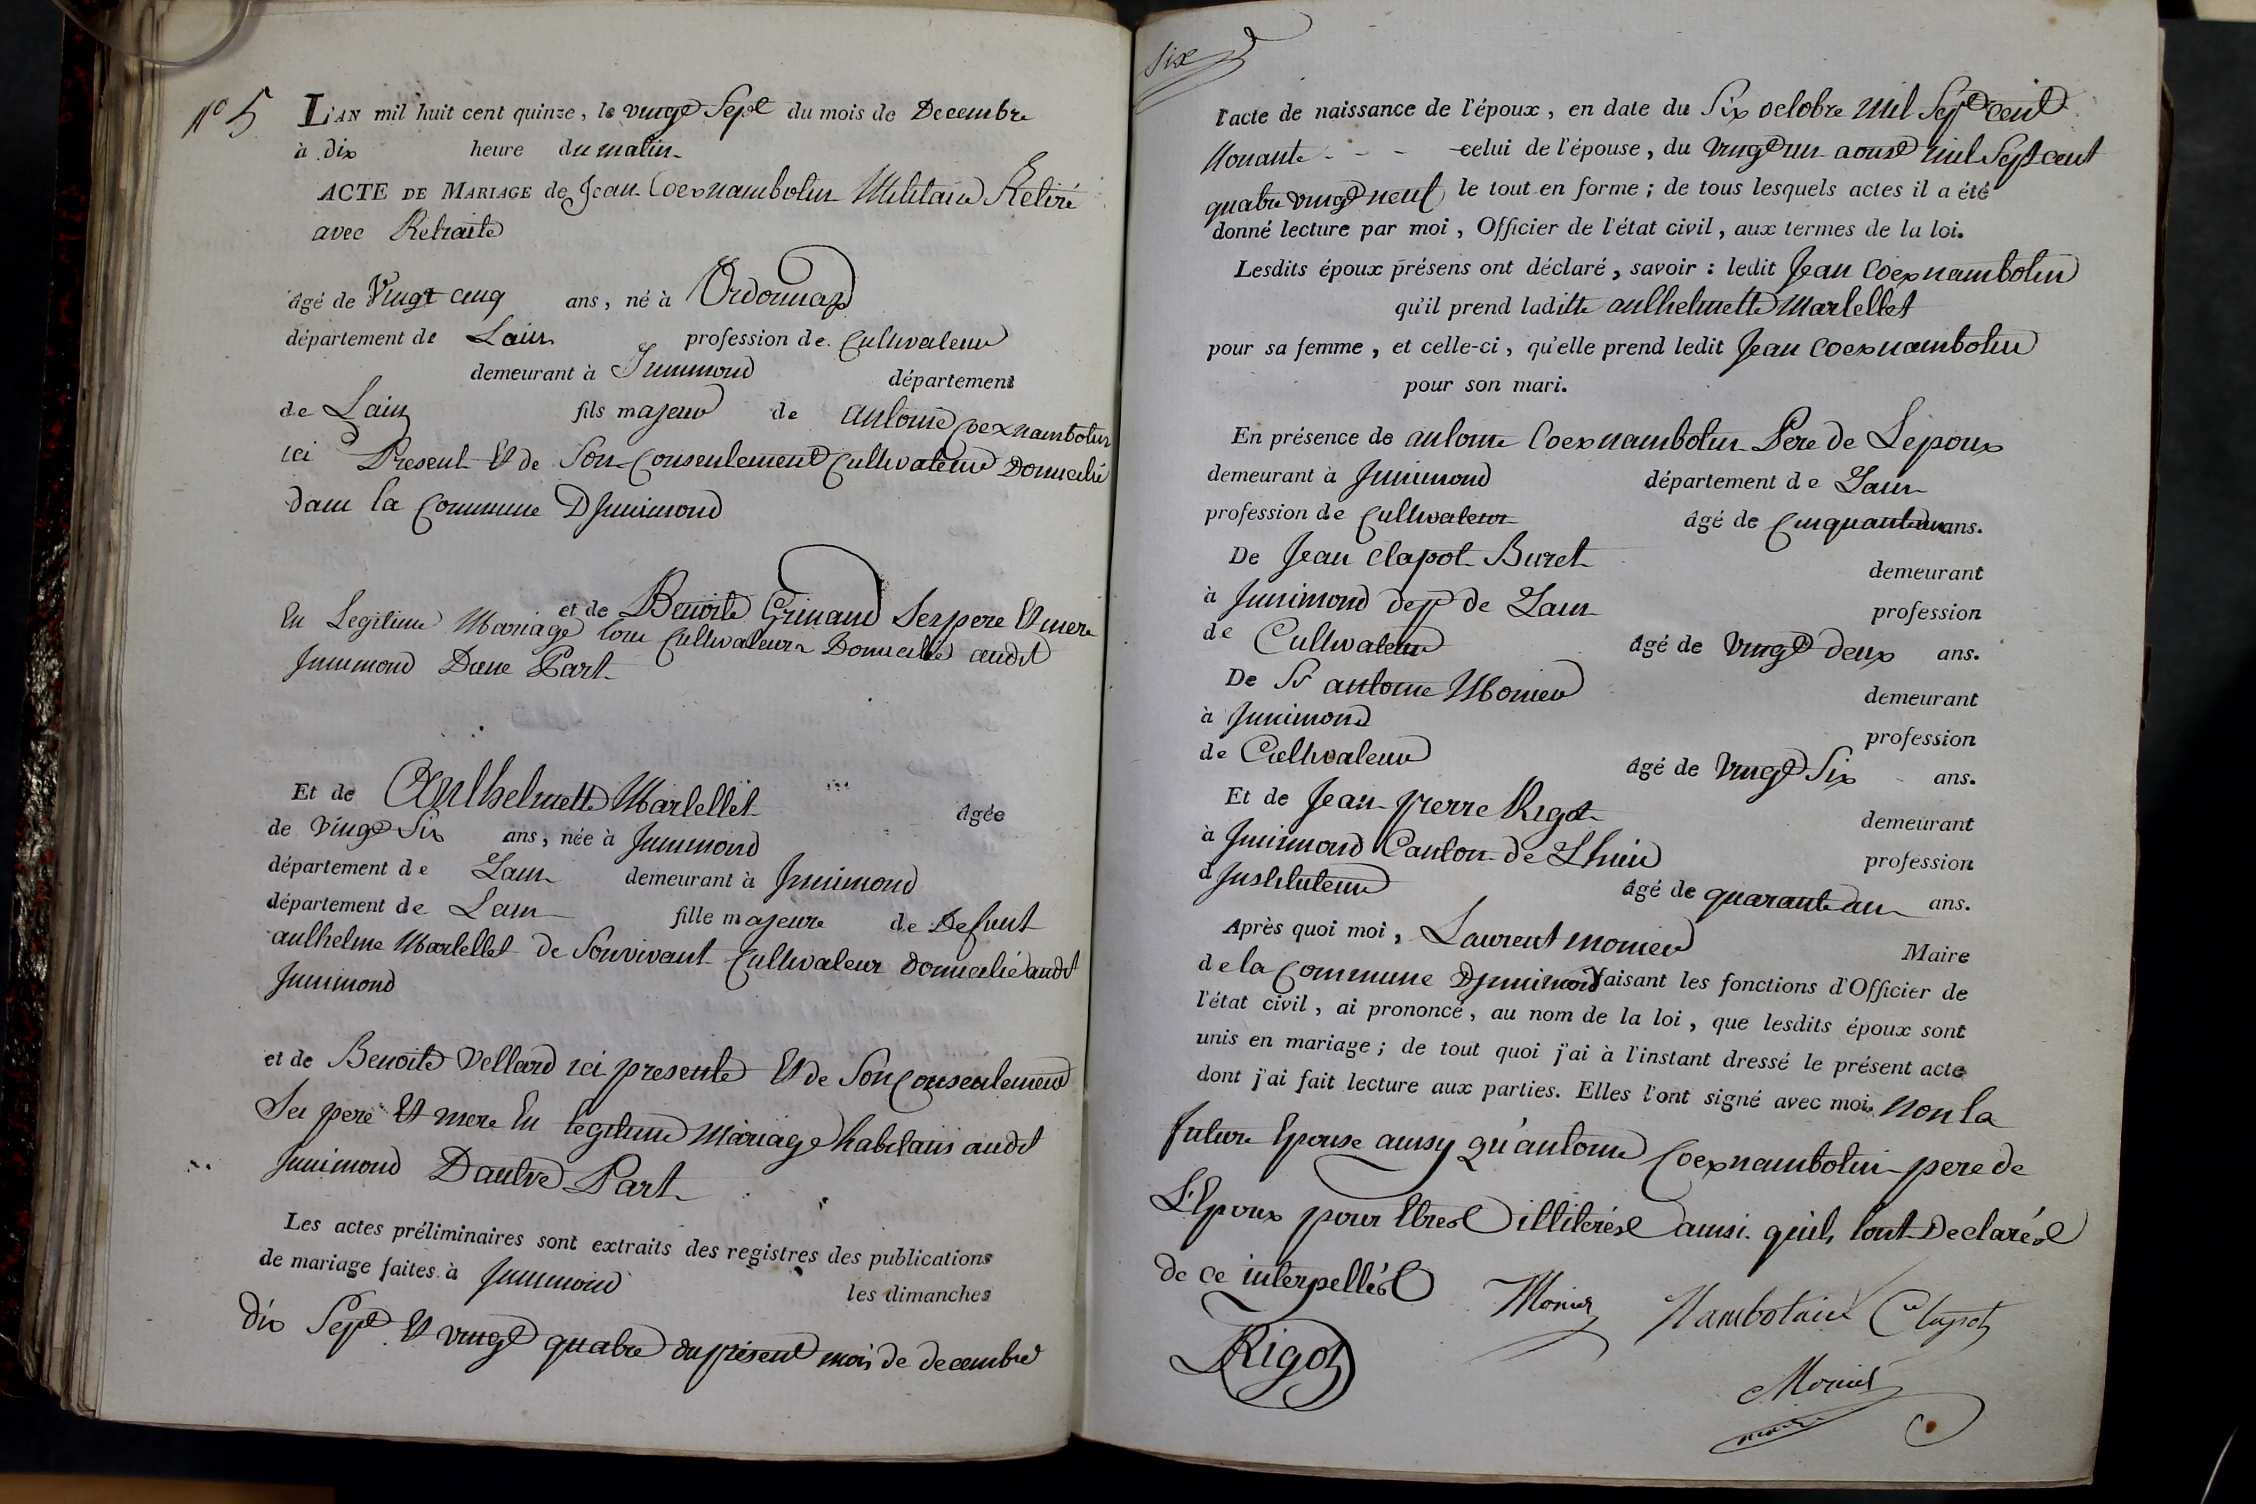 N° 5
L'AN mil huit cent quinze, le vingt Sept du mois de Decembre
à dix heure du matin
ACTE DE MARIAGE de Jean Coexnambotin Militaire Retiré
avec Retraite
âgé de Vingt cinq ans, né à Ordonnaz
département de Lain profession de Cultivateur
demeurant à Innimond département
de Lain fils majeur de antoine Coexnambotin
ici Present Et de Son Consentement Cultivateur Domicilié
dans la Commune DInnimond
et de Benoite Grinand Ses pere Et mere
En Legitime Mariage tous Cultivateurs Domicilié audit
Innimond Dune Part
Et de Anthelmette Martellet âgée
de vingt Six ans, née à Innimond
département de Lain demeurant à Innimond
département de Lain fille majeure de Defunt
anthelme Martellet de Sonvivant Cultivateur domicilié audit
Innimond
et de Benoite Vellard ici presente Et de Son Consentement
Ses pere Et mere En legitime Mariage habitans audit
Innimond Dautre Part
Les actes préliminaires sont extraits des registres des publications
de mariage faites à Innimond les dimanches
dix Sept Et vingt quatre du présent mois de decembre
Six
l'acte de naissance de l'époux, en date du Six octobre mil Sept cent
Nonante - - - celui de l'épouse, du vingt un aoust mil Sept cent
quatre vingt neuf le tout en forme ; de tous lesquels actes il a été
donné lecture par moi, Officier de l'état civil, aux termes de la loi.
Lesdits époux présens ont déclaré, savoir : ledit Jean Coexnambotin
qu'il prend laditte anthelmette Martellet
pour sa femme, et celle-ci, qu'elle prend ledit Jean Coexnambotin
pour son mari.
En présence de antoine Coexnambotin Pere de Lepoux
demeurant à Innimond département de Lain
profession de Cultivateur âgé de Cinquante un ans.
De Jean Clapot Buret demeurant
à Innimond dept de Lain profession
de Cultivateur âgé de vingt deux ans.
De Sr antoine Monier demeurant
à Innimond profession
de Cultivateur âgé de vingt Six ans.
Et de Jean pierre Rigot demeurant
à Innimond Canton de Lhuis profession
d Instituteur âgé de quarante un ans.
Après quoi moi, Laurent monier Maire
de la Commune DInnimond faisant les fonctions d'Officier de
l'état civil, ai prononcé, au nom de la loi, que lesdits époux sont
unis en mariage ; de tout quoi j'ai à l'instant dressé le présent acte
dont j'ai fait lecture aux parties. Elles l'ont signé avec moi, Non la
future Epouse aussy qu'antoine Coexnambotin pere de
LEpoux pour Etres illiterés ainsi quils lont Declarés
de ce interpellés Monier Nambotin Clapot
Rigot
Monier
maire